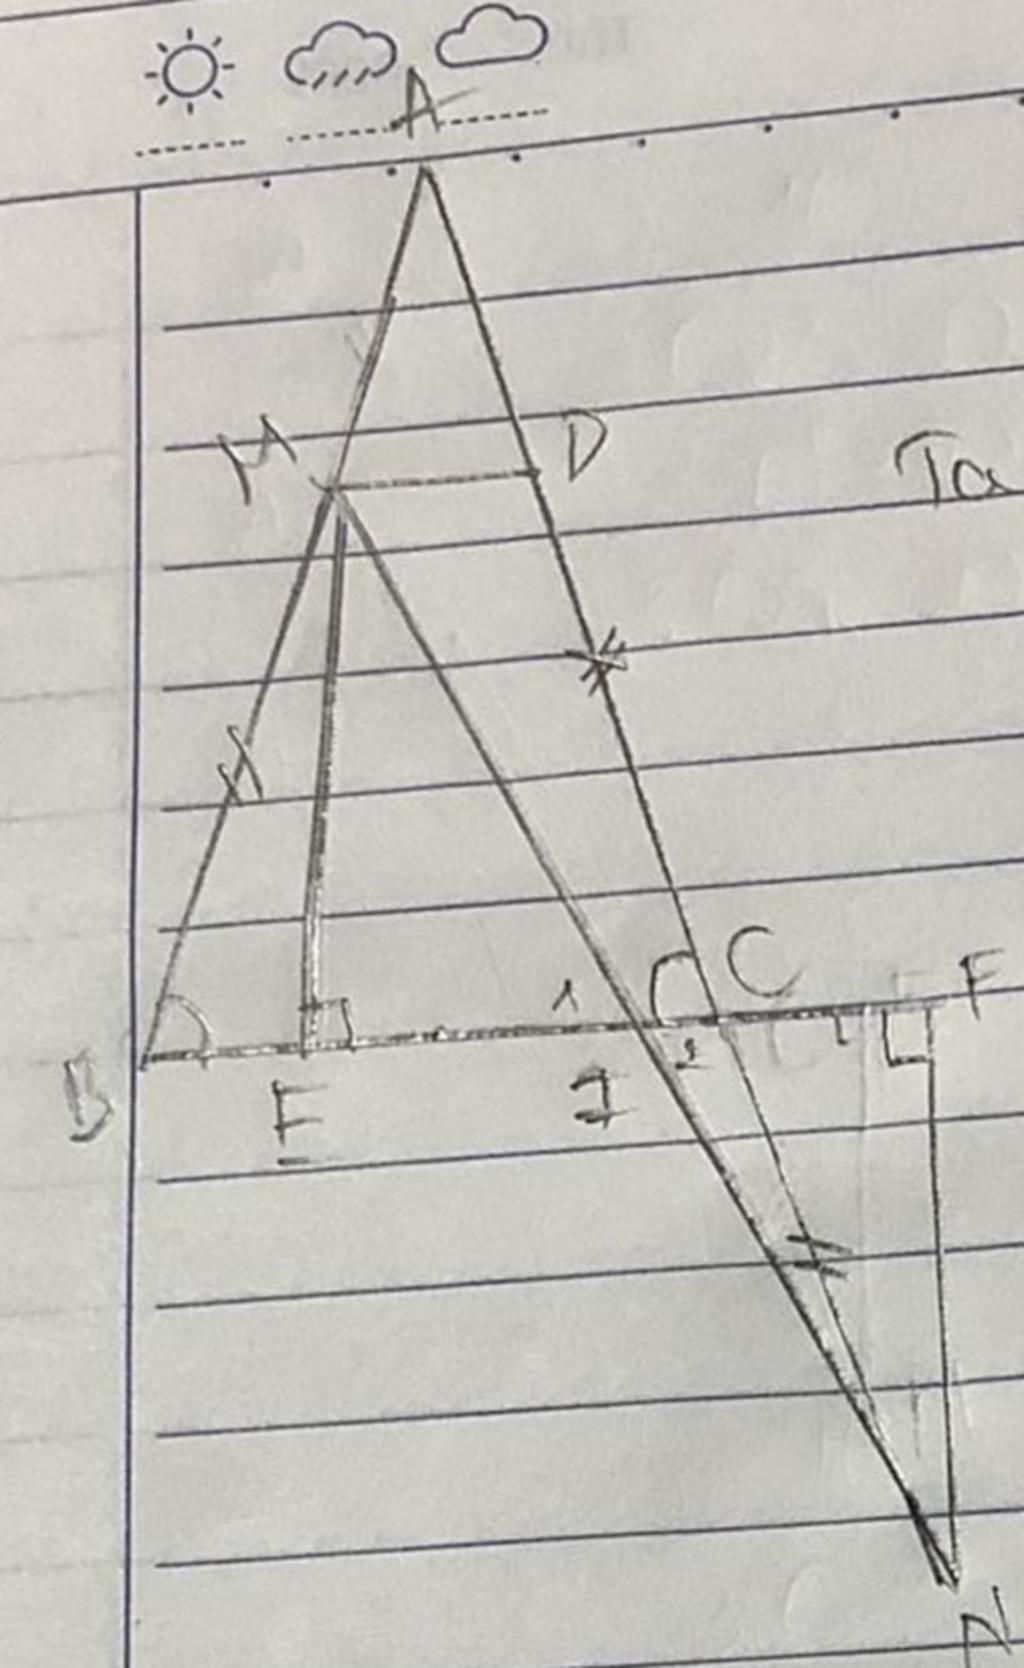 A
M
D
Ta
C
F
1
B
E
I
2
N